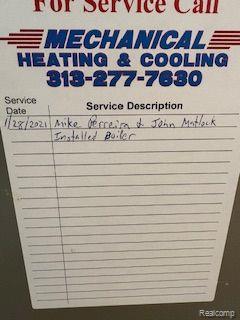 For Service Call
MECHANICAL
HEATING & COOLING
313-277-7630
Service Date
Service Description
1/28/2021 Mike Perreira & John Matlock
Installed Boiler
Realcomp